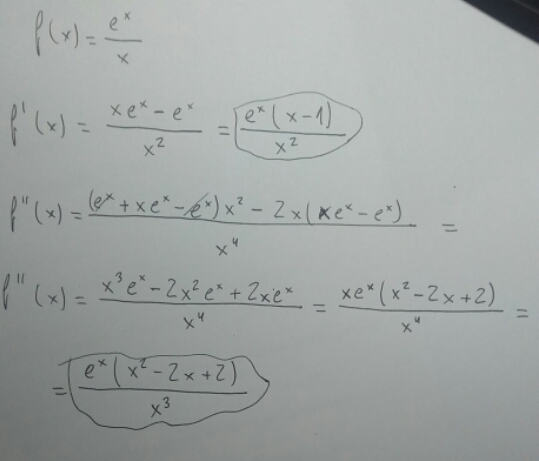 f(x) = e^x / x
f'(x) = (xe^x - e^x) / x² = e^x(x-1) / x²
f''(x) = ((e^x + xe^x - e^x)x² - 2x(xe^x - e^x)) / x⁴ =
f''(x) = (x³e^x - 2x²e^x + 2xe^x) / x⁴ = xe^x(x² - 2x + 2) / x⁴ =
= e^x(x² - 2x + 2) / x³